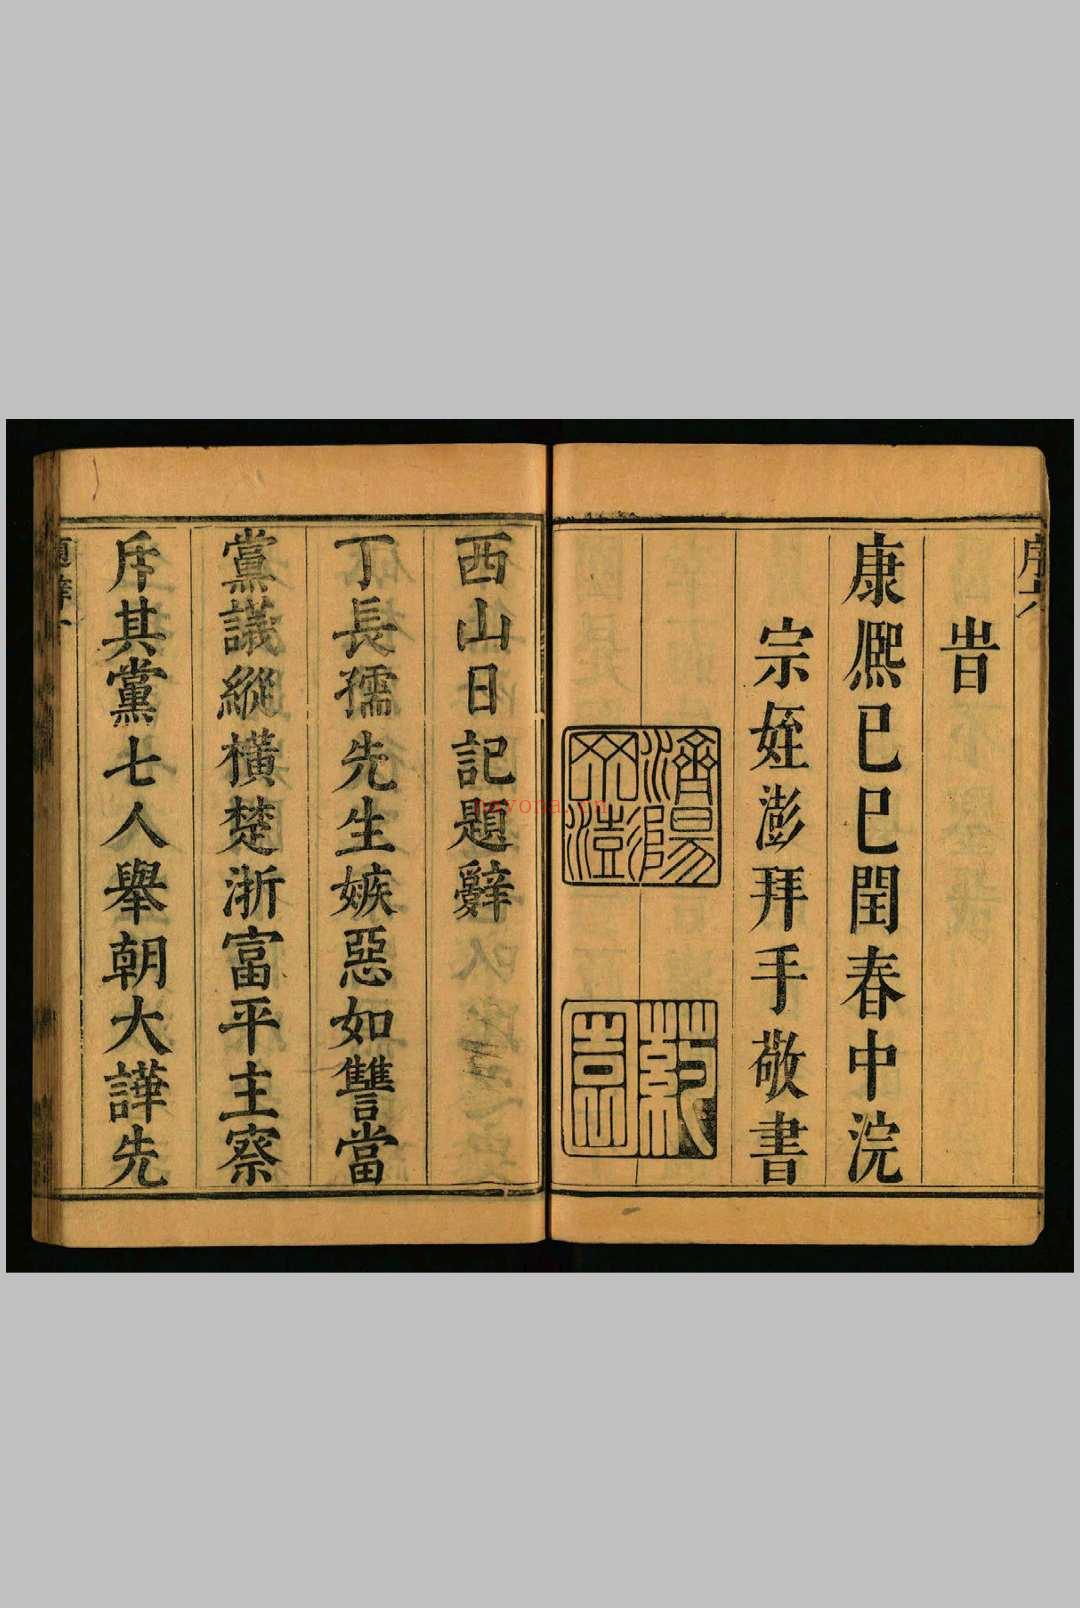 旹
康熙己巳閏春中浣
宗姪澎拜手敬書
西山日記題辭
丁長孺先生嫉惡如讐當
黨議縱橫楚浙富平主察
斥其黨七人舉朝大譁先
nayona.cn